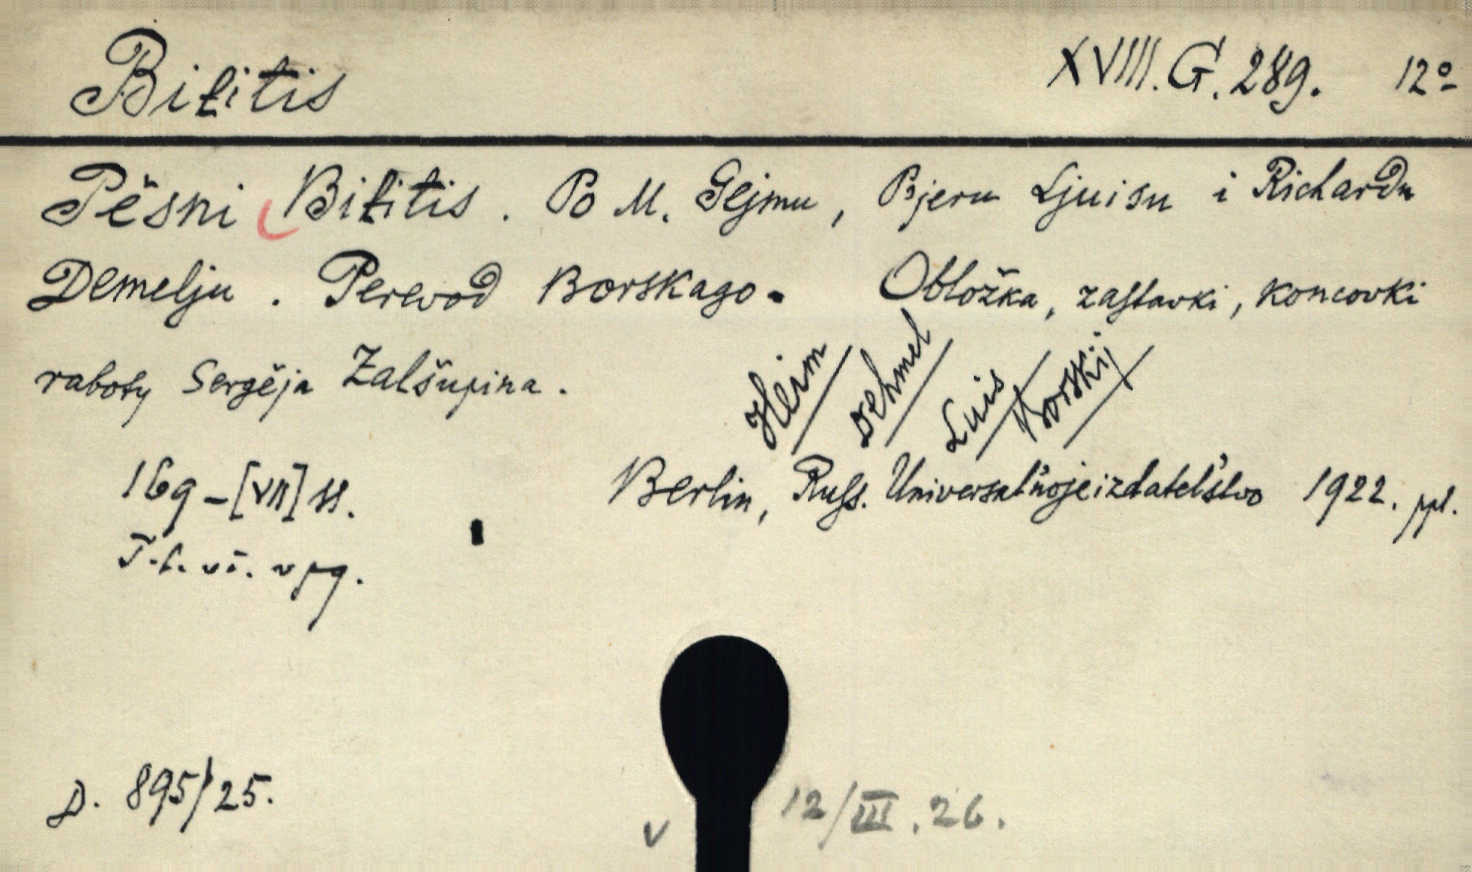 Biłitis XVIII. G. 289. 12º
Pěsni Biłitis. Po M. Gejmu, Pjeru Ljuisu i Richardu
Demelju. Perevod Borskago. Obłožka, zastavki, koncovki
raboty Sergěja Załšupina.
Heim Dehmel Luis Borskij
169-[VII] ss. Berlin, Russ. Universal'noje izdatel'stvo 1922. ppl.
T. t. vi. v pg.
D. 895/25.
v 12/III. 26.